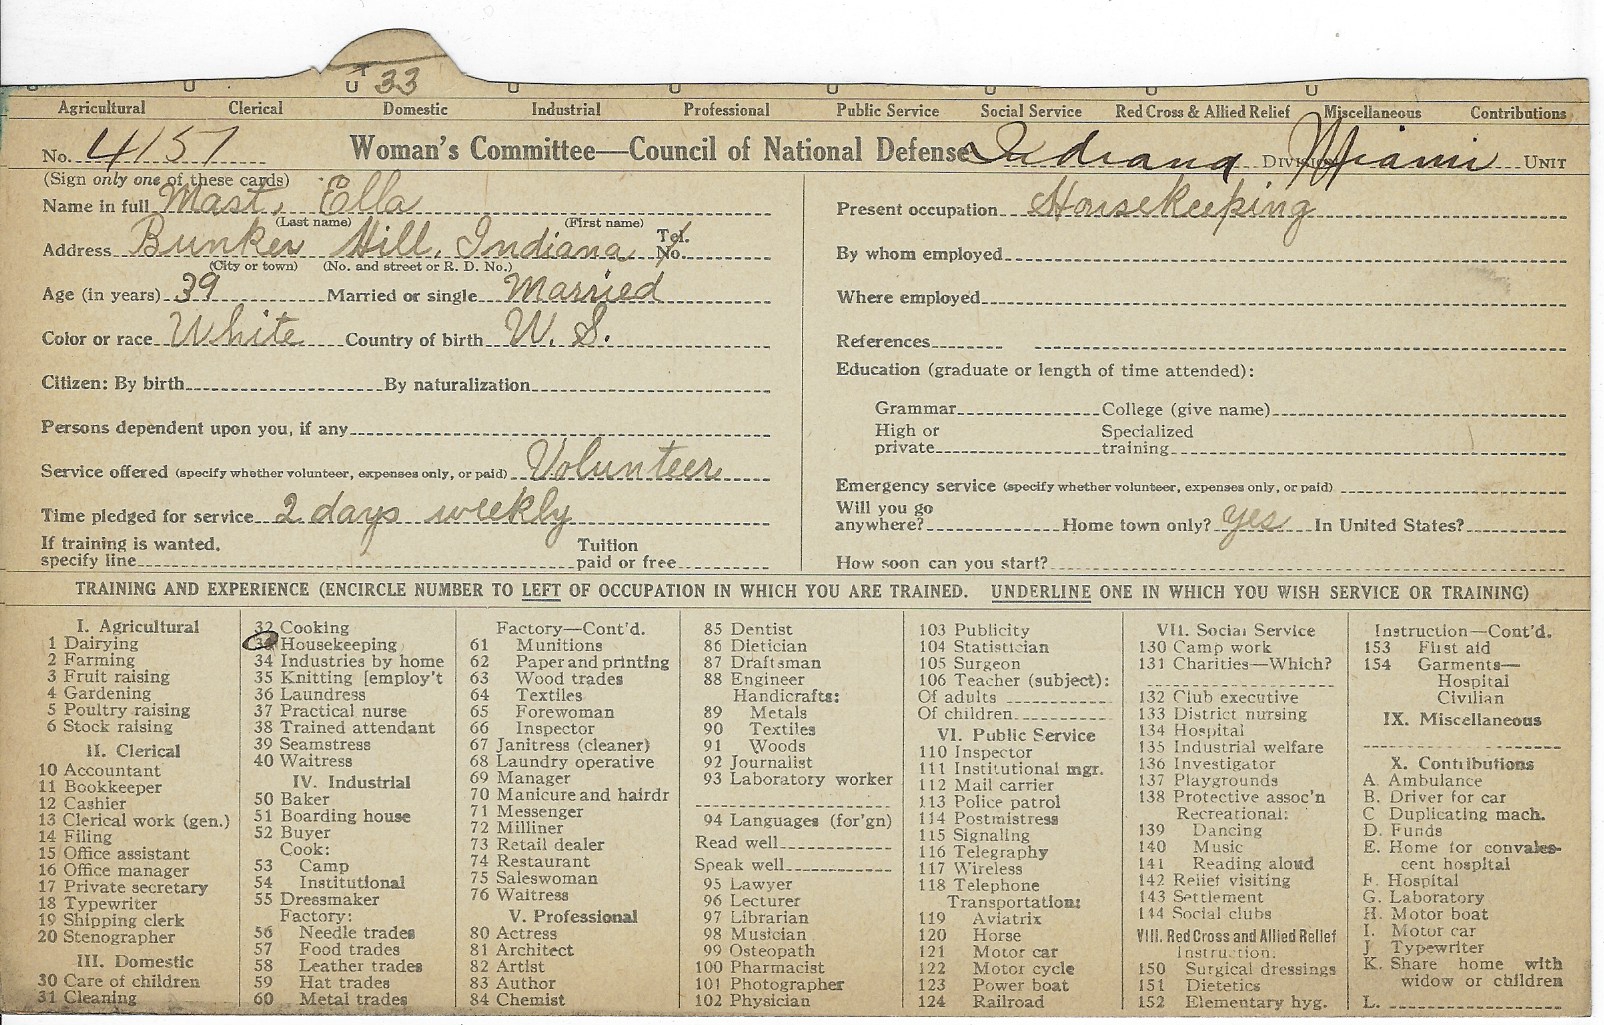 33
Agricultural Clerical Domestic Industrial Professional Public Service Social Service Red Cross & Allied Relief Miscellaneous Contributions
No. 4157 Woman's Committee—Council of National Defense Indiana Division Miami Unit
(Sign only one of these cards)
Name in full Mast, Ella
(Last name) (First name)
Address Bunker Hill, Indiana Tel. No.
(City or town) (No. and street or R. D. No.)
Age (in years) 39 Married or single Married
Color or race White Country of birth U. S.
Citizen: By birth By naturalization
Persons dependent upon you, if any
Service offered (specify whether volunteer, expenses only, or paid) Volunteer
Time pledged for service 2 days weekly
If training is wanted, Tuition
specify line paid or free
Present occupation Housekeeping
By whom employed
Where employed
References
Education (graduate or length of time attended):
Grammar College (give name)
High or Specialized
private training
Emergency service (specify whether volunteer, expenses only, or paid)
Will you go
anywhere? Home town only? yes In United States?
How soon can you start?
TRAINING AND EXPERIENCE (ENCIRCLE NUMBER TO LEFT OF OCCUPATION IN WHICH YOU ARE TRAINED. UNDERLINE ONE IN WHICH YOU WISH SERVICE OR TRAINING)
I. Agricultural
1 Dairying
2 Farming
3 Fruit raising
4 Gardening
5 Poultry raising
6 Stock raising
II. Clerical
10 Accountant
11 Bookkeeper
12 Cashier
13 Clerical work (gen.)
14 Filing
15 Office assistant
16 Office manager
17 Private secretary
18 Typewriter
19 Shipping clerk
20 Stenographer
III. Domestic
30 Care of children
31 Cleaning
32 Cooking
33 Housekeeping
34 Industries by home
35 Knitting [employ't
36 Laundress
37 Practical nurse
38 Trained attendant
39 Seamstress
40 Waitress
IV. Industrial
50 Baker
51 Boarding house
52 Buyer
Cook:
53 Camp
54 Institutional
55 Dressmaker
Factory:
56 Needle trades
57 Food trades
58 Leather trades
59 Hat trades
60 Metal trades
Factory—Cont'd.
61 Munitions
62 Paper and printing
63 Wood trades
64 Textiles
65 Forewoman
66 Inspector
67 Janitress (cleaner)
68 Laundry operative
69 Manager
70 Manicure and hairdr
71 Messenger
72 Milliner
73 Retail dealer
74 Restaurant
75 Saleswoman
76 Waitress
V. Professional
80 Actress
81 Architect
82 Artist
83 Author
84 Chemist
85 Dentist
86 Dietician
87 Draftsman
88 Engineer
Handicrafts:
89 Metals
90 Textiles
91 Woods
92 Journalist
93 Laboratory worker
94 Languages (for'gn)
Read well
Speak well
95 Lawyer
96 Lecturer
97 Librarian
98 Musician
99 Osteopath
100 Pharmacist
101 Photographer
102 Physician
103 Publicity
104 Statistician
105 Surgeon
106 Teacher (subject):
Of adults
Of children
VI. Public Service
110 Inspector
111 Institutional mgr.
112 Mail carrier
113 Police patrol
114 Postmistress
115 Signaling
116 Telegraphy
117 Wireless
118 Telephone
Transportation:
119 Aviatrix
120 Horse
121 Motor car
122 Motor cycle
123 Power boat
124 Railroad
VII. Social Service
130 Camp work
131 Charities—Which?
132 Club executive
133 District nursing
134 Hospital
135 Industrial welfare
136 Investigator
137 Playgrounds
138 Protective assoc'n
Recreational:
139 Dancing
140 Music
141 Reading aloud
142 Relief visiting
143 Settlement
144 Social clubs
VIII. Red Cross and Allied Relief
Instruction:
150 Surgical dressings
151 Dietetics
152 Elementary hyg.
Instruction—Cont'd.
153 First aid
154 Garments—
Hospital
Civilian
IX. Miscellaneous
X. Contributions
A. Ambulance
B. Driver for car
C Duplicating mach.
D. Funds
E. Home for convales-
cent hospital
F. Hospital
G. Laboratory
H. Motor boat
I. Motor car
J. Typewriter
K. Share home with
widow or children
L.